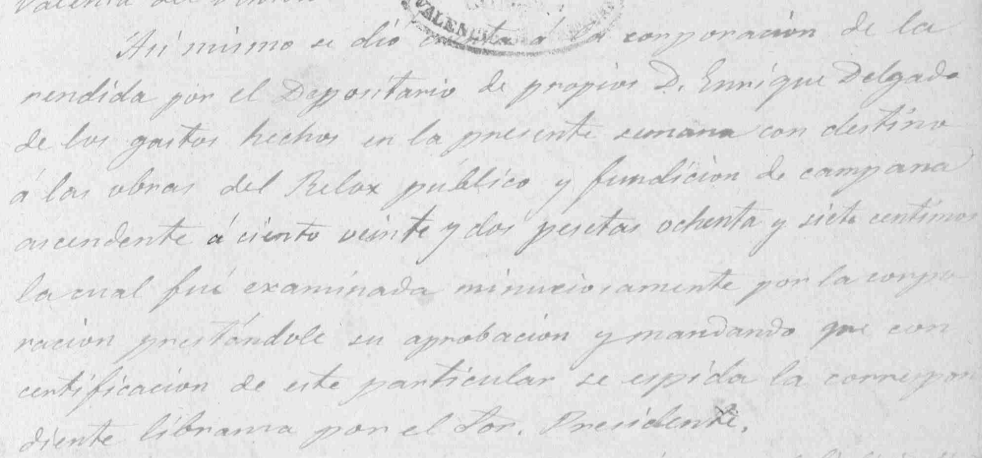 Valencia del
VALENCIA
Asi mismo se dió cuenta á la corporacion de la
rendida por el Depositario de propios D. Enrique Delgado
de los gastos hechos en la presente semana con destino
á las obras del Relox público y fundicion de campana
ascendente á ciento veinte y dos pesetas ochenta y siete centimos
la cual fué examinada minuciosamente por la corpo
racion prestándole su aprobacion y mandando que con
certificacion de este particular se espida la correspon
diente libranza por el Sor. Presidente.